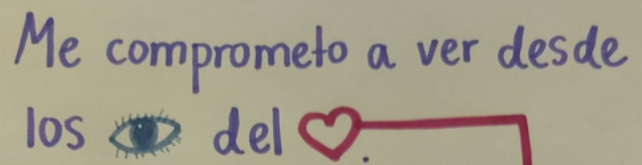 Me comprometo a ver desde
los 👁 del ♡.